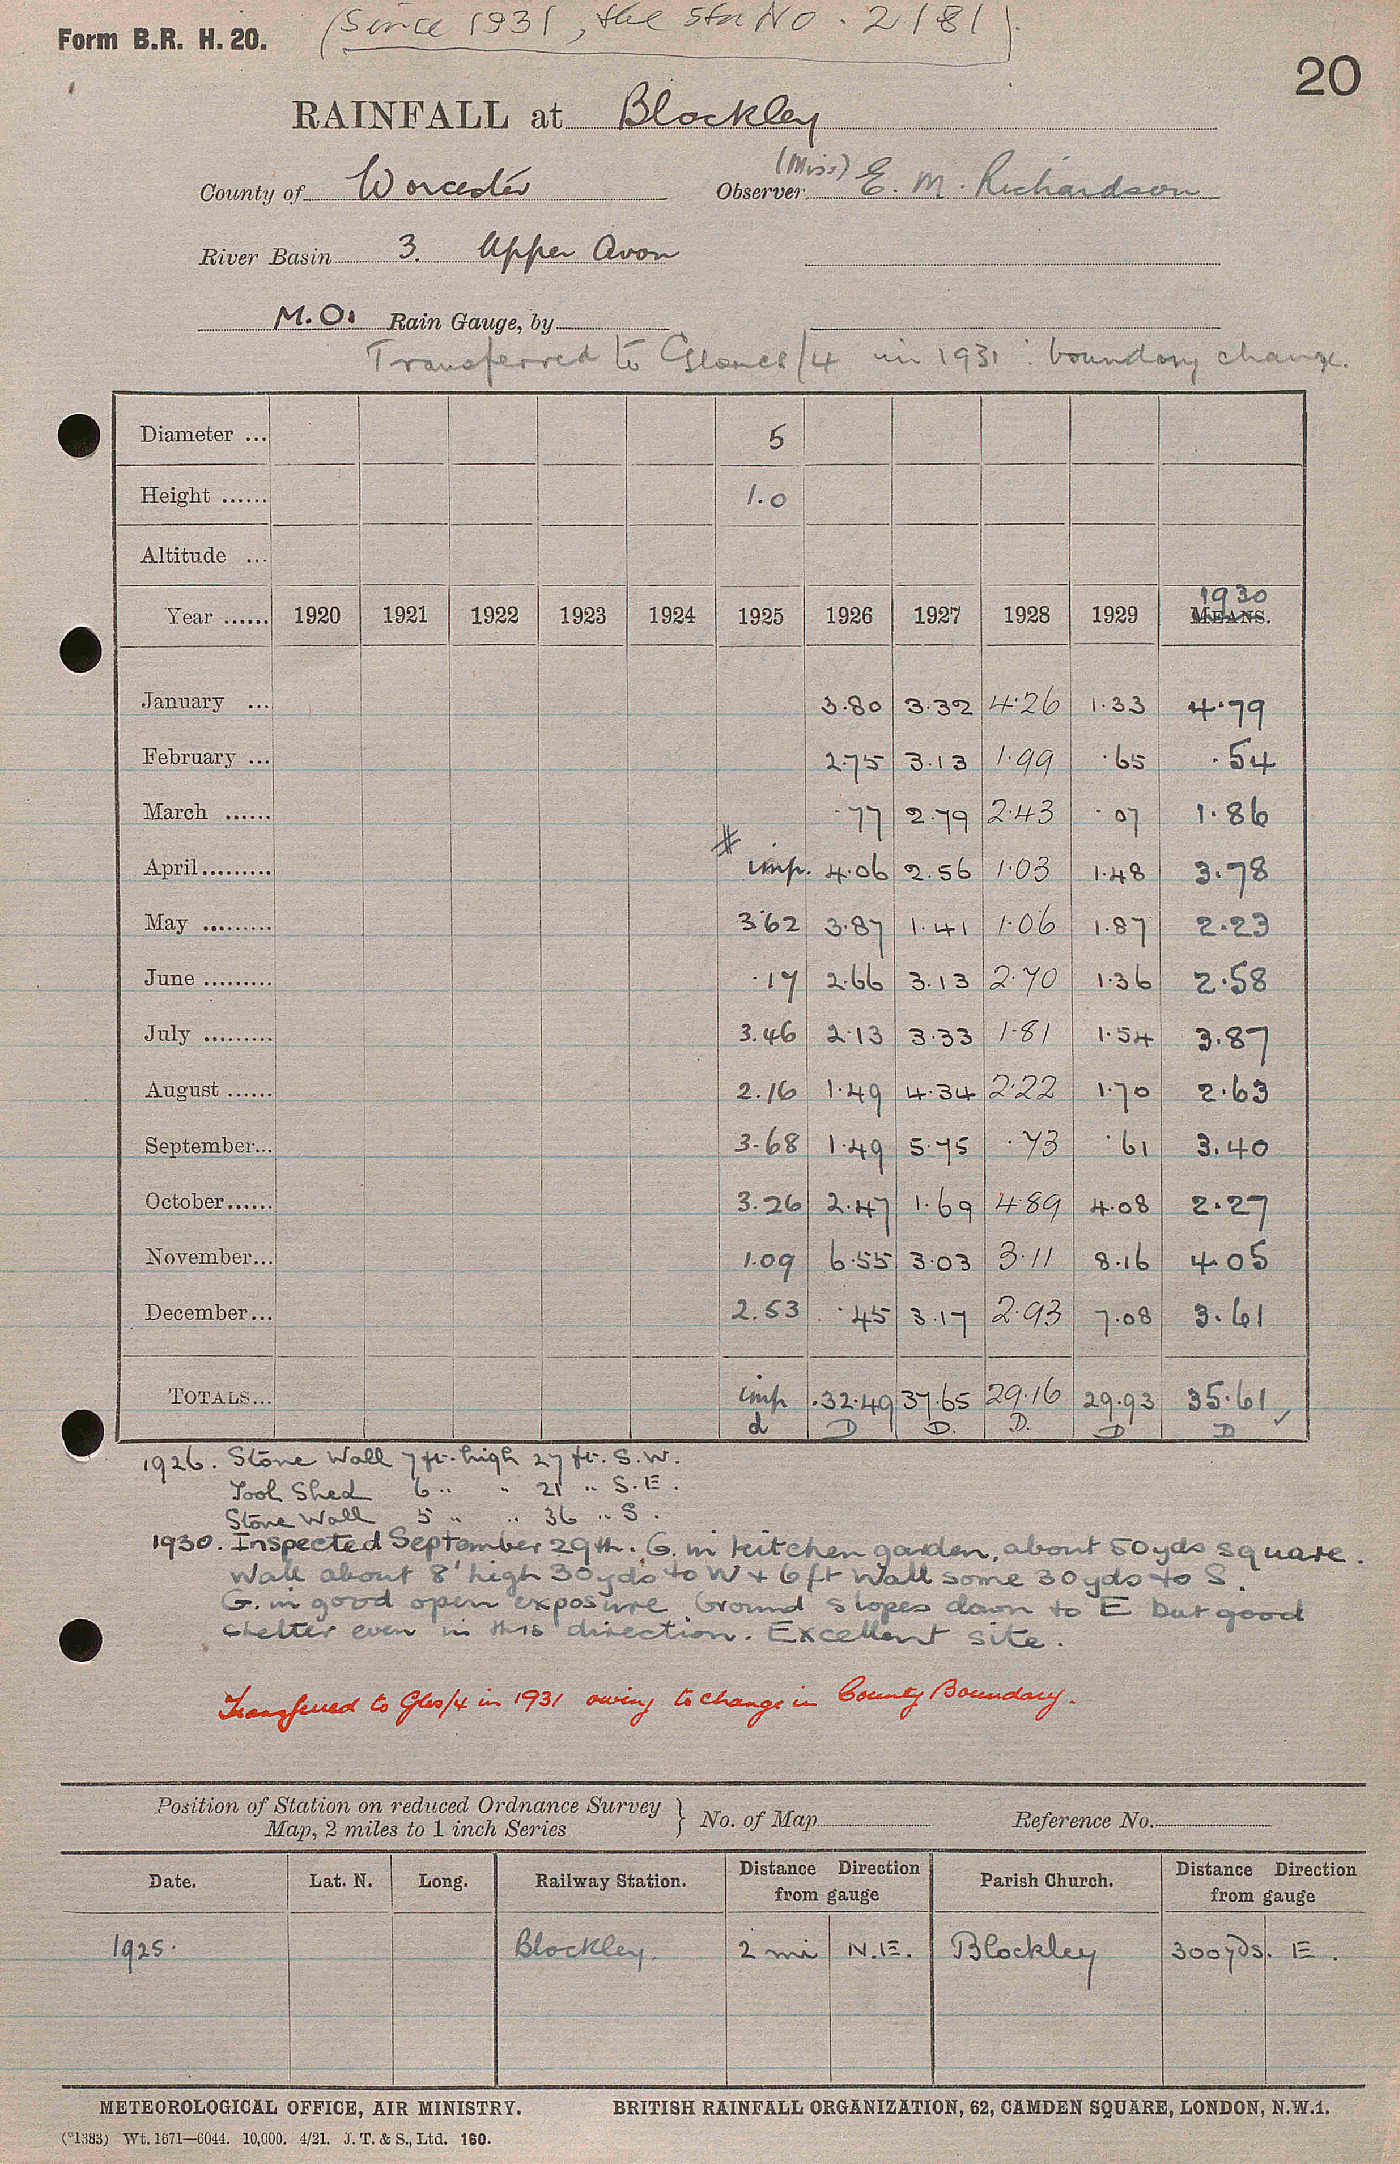 (Since 1931, the stn No. 2181).
Form B.R. H. 20.
20
RAINFALL at Blockley
County of Worcester Observer (Miss) E. M. Richardson
River Basin 3. Upper Avon
M.O. Rain Gauge, by
Transferred to Glouces/4 in 1931 : boundary change.
Diameter ... 5
Height ...... 1.0
Altitude ...
1930
Year ...... 1920 1921 1922 1923 1924 1925 1926 1927 1928 1929 MEANS.
January ... 3.80 3.32 4.26 1.33 4.79
February ... 2.75 3.13 1.99 .65 .54
March ...... .77 2.79 2.43 .07 1.86
April......... # imp. 4.06 2.56 1.03 1.48 3.78
May ......... 3.62 3.87 1.41 1.06 1.87 2.23
June ......... .17 2.66 3.13 2.70 1.36 2.58
July ......... 3.46 2.13 3.33 1.81 1.54 3.87
August ...... 2.16 1.49 4.34 2.22 1.70 2.63
September... 3.68 1.49 5.75 .73 .61 3.40
October...... 3.26 2.47 1.69 4.89 4.08 2.27
November... 1.09 6.55 3.03 3.11 8.16 4.05
December... 2.53 .45 3.17 2.93 7.08 3.61
TOTALS... imp 32.49 37.65 29.16 29.93 35.61 ✓
d D D. D. D D
1926. Stone Wall 7 ft. high 27 ft. S.W.
Tool Shed 6 " " 21 " S.E.
Stone Wall 5 " " 36 " S.
1930. Inspected September 29th. G. in kitchen garden, about 50yds square.
Wall about 8' high 30yds to W + 6ft wall some 30yds to S.
G. in good open exposure. Ground slopes down to E but good
shelter even in this direction. Excellent site.
Transferred to Glos/4 in 1931 owing to change in County Boundary.
Position of Station on reduced Ordnance Survey
Map, 2 miles to 1 inch Series } No. of Map Reference No.
Date. Lat. N. Long. Railway Station. Distance Direction from gauge Parish Church. Distance Direction from gauge
1925. Blockley. 2 mi N.E. Blockley 300yds. E.
METEOROLOGICAL OFFICE, AIR MINISTRY. BRITISH RAINFALL ORGANIZATION, 62, CAMDEN SQUARE, LONDON, N.W.1.
(*1383) Wt. 1671—6044. 10,000. 4/21. J. T. & S., Ltd. 160.